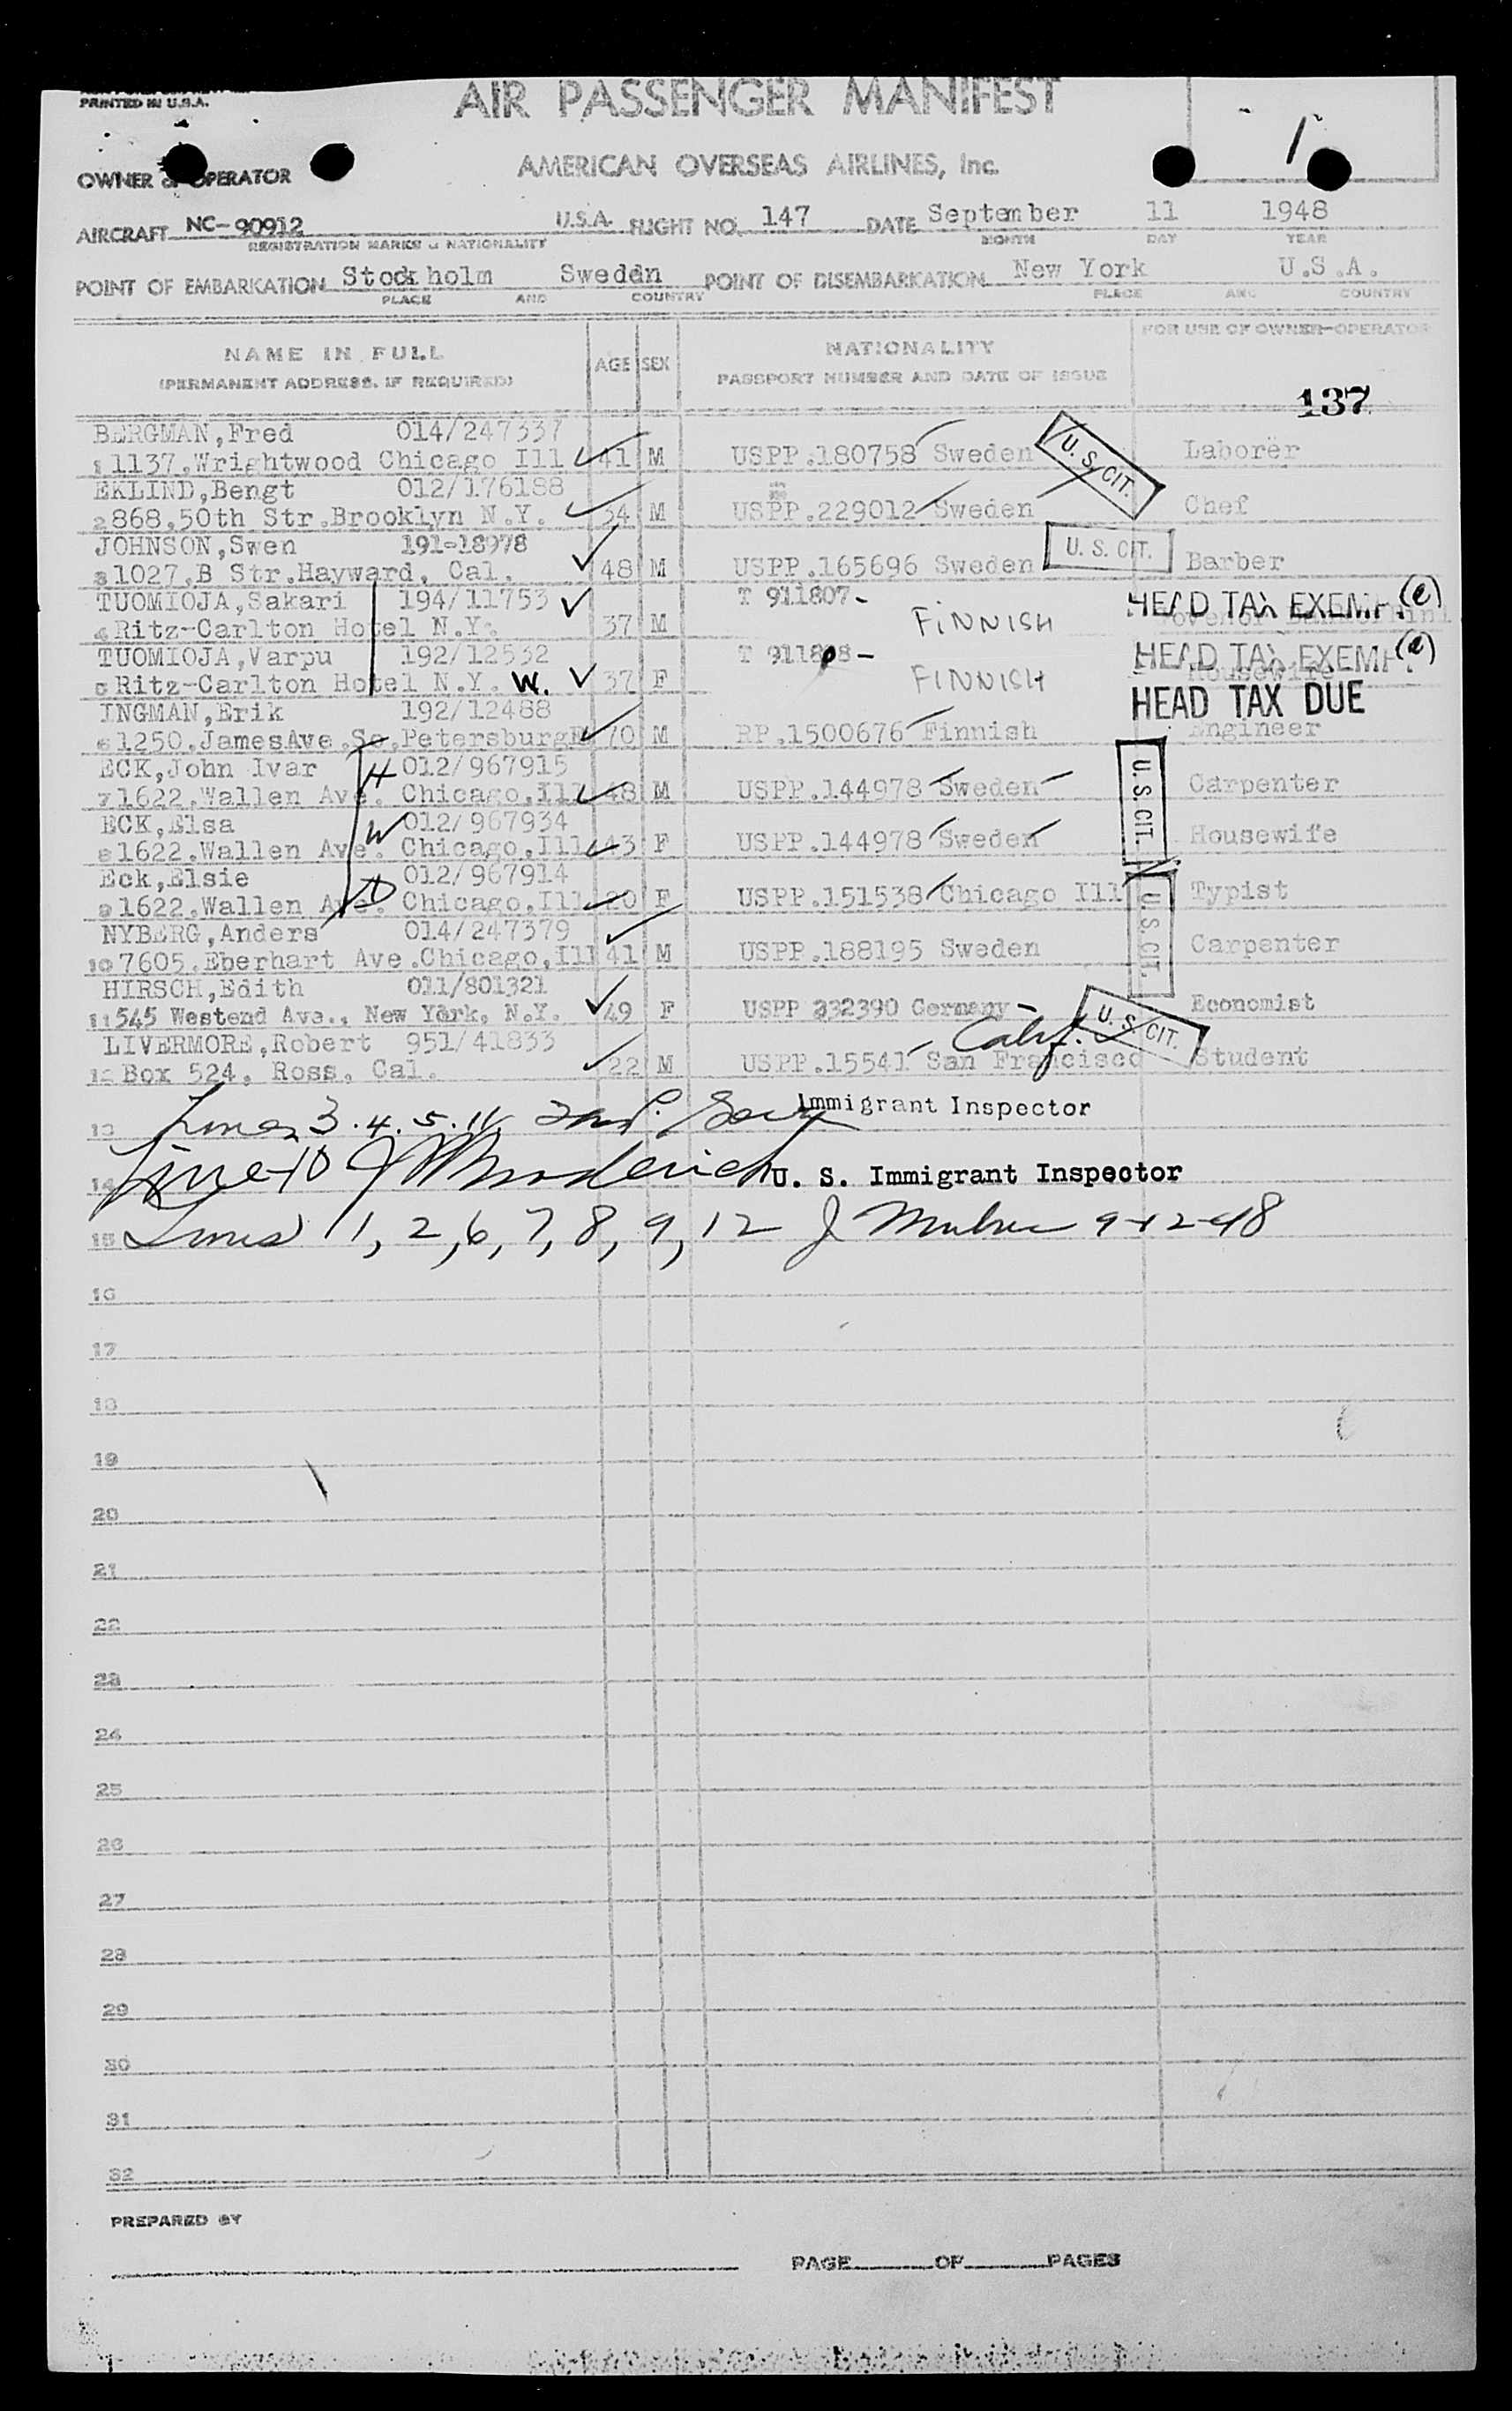 PRINTED IN U.S.A.
AIR PASSENGER MANIFEST
1
OWNER or OPERATOR AMERICAN OVERSEAS AIRLINES, Inc.
AIRCRAFT NC-90912 U.S.A. FLIGHT NO. 147 DATE September 11 1948
REGISTRATION MARKS & NATIONALITY MONTH DAY YEAR
POINT OF EMBARKATION Stockholm Sweden POINT OF DISEMBARKATION New York U.S.A.
PLACE AND COUNTRY PLACE AND COUNTRY
NAME IN FULL AGE SEX NATIONALITY FOR USE OF OWNER-OPERATOR
(PERMANENT ADDRESS, IF REQUIRED) PASSPORT NUMBER AND DATE OF ISSUE
137
BERGMAN,Fred 014/247337
1 1137.Wrightwood Chicago Ill 41 M USPP.180758 Sweden U. S. CIT. Laborer
EKLIND,Bengt 012/176188
2 868.50th Str.Brooklyn N.Y. 34 M USPP.229012 Sweden Chef
JOHNSON,Swen 191-18978
3 1027.B Str.Hayward, Cal. 48 M USPP.165696 Sweden U. S. CIT. Barber
TUOMIOJA,Sakari 194/11753 T 911807- HEAD TAX EXEMP. (e)
4 Ritz-Carlton Hotel N.Y. 37 M FINNISH
TUOMIOJA,Varpu 192/12532 T 911808- HEAD TAX EXEMP. (e)
5 Ritz-Carlton Hotel N.Y. W. 37 F FINNISH Housewife
INGMAN,Erik 192/12488 HEAD TAX DUE
6 1250.JamesAve.So.Petersburg 70 M PP.1500676 Finnish Engineer
ECK,John Ivar H 012/967915
7 1622.Wallen Ave. Chicago,Ill 48 M USPP.144978 Sweden U. S. CIT. Carpenter
ECK,Elsa W 012/967934
8 1622.Wallen Ave. Chicago,Ill 43 F USPP.144978 Sweden Housewife
Eck,Elsie D 012/967914
9 1622.Wallen Ave. Chicago,Ill 20 F USPP.151538 Chicago Ill U. S. CIT. Typist
NYBERG,Anders 014/247379
10 7605.Eberhart Ave.Chicago,Ill 41 M USPP.188195 Sweden Carpenter
HIRSCH,Edith 011/801321
11 545 Westend Ave., New York, N.Y. 49 F USPP 232390 Germany- Economist
LIVERMORE,Robert 951/41833 Calif. U. S. CIT.
12 Box 524, Ross, Cal. 22 M USPP.15541 San Francisco Student
13 Lines 3.4.5.11 Immigrant Inspector
14 Line 10 U. S. Immigrant Inspector
15 Lines 1, 2, 6, 7, 8, 9, 12 9-12-48
16
17
18
19
20
21
22
23
24
25
26
27
28
29
30
31
32
PREPARED BY
PAGE OF PAGES